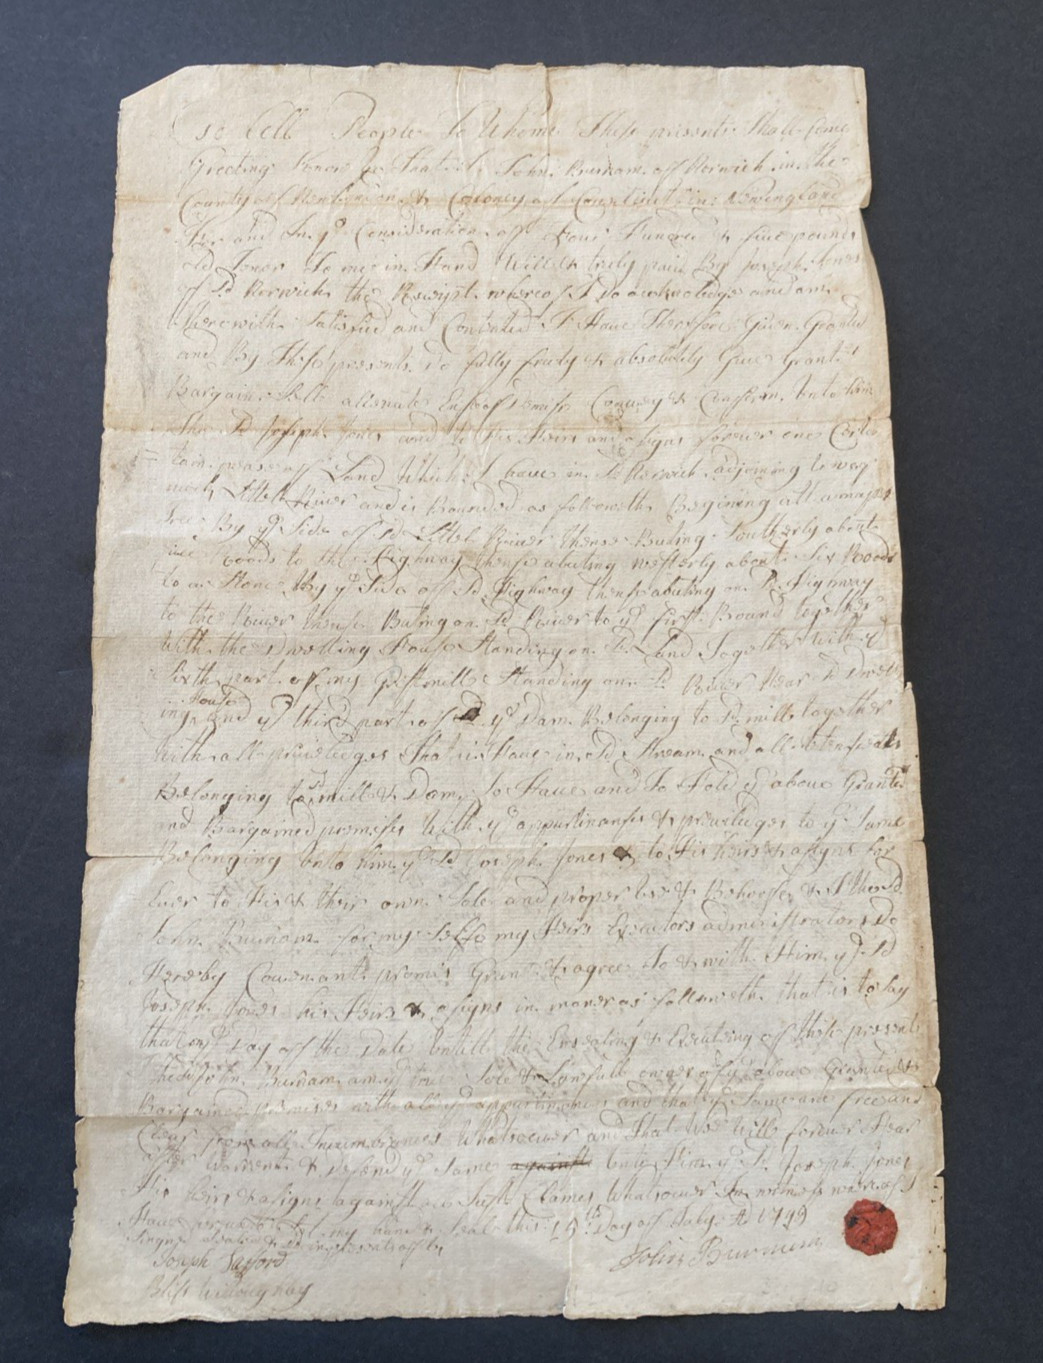 To All People To Whome These presents Shall Come
Greeting Know ye That I John Burnam off Norwich in the
County of New London & Coloney of Connecticut in Newengland
For and In ye Consideration off Four Hundred & five pounds
old Tenor To me in Hand Well & truly paid By Joseph Jones
of sd Norwich the Receipt whereof I Do acknoledge and am
therewith Satisfied and Contented & Have Therefore Given Granted
and By These presents Do fully freely & absolutely Give Grant
Bargain Sell alienate Convey & Confirm unto him
the sd Joseph Jones and to His Heirs and asigns forever one Certen
of Land Which I have in sd Norwich adjoining to
Littel River and is Bounded as followeth Begining att a
tree By ye Side off sd Littel River thense Southerly about
Roods to the Highway thense abuting westerly about Six Roods
to a Stone By ye Side off sd Highway thense abuting on sd Highway
to the River thense Buting on sd River to ye first Bound together
With the Dwelling House Standing on sd Land Together with ye
part of my Gristmill Standing on sd River Near sd Dwell
ing House and ye third part of ye Dam Belonging to sd mill together
with all priviledges that is Have in sd Stream and all
Belonging to sd mill & Dam To Have and To Hold ye above Granted
and Bargained premises With ye appurtinanses & priviledges to ye Same
Belonging unto him ye sd Joseph Jones & to His heirs & asigns for
Ever to His & their own Sole and proper use & Behoofe & I the sd
John Burnam for my Selfe my Heirs Executors administrators Do
Hereby Covenant promis Grant & agree to & with Him ye sd
Joseph Jones his Heirs & asigns in maner as followeth that is to Say
that on ye Day off the Date untill the Ensealing & Executing off these presents
I the sd John Burnam am ye true Sole & Lawfull owner of ye above Granted &
Bargained premises with all ye appurtinances and that ye Same are free and
Clear from all Incumbrances Whatsoever and That We Will forever Hear
after Warrent & Defend ye Same against unto Him ye sd Joseph Jones
His heirs & asigns against Clames Whatsoever In witness whereof I
Have my hand & Seal this 19th Day off July AD
Joseph Safford
John Burnam
Bliss Willoughby